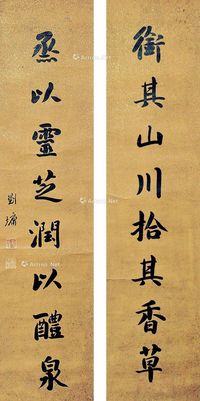 銜其山川拾其香草
烝以靈芝潤以醴泉
劉墉